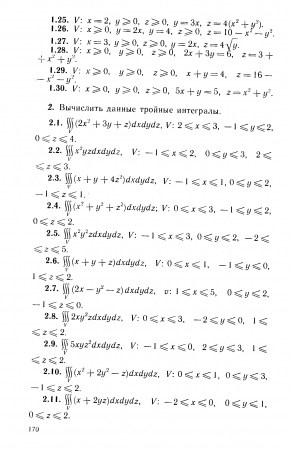 1.25. V: x=2, y⩾0, z⩾0, y=3x, z=4(x²+y²).
1.26. V: x⩾0, y=2x, y=4, z⩾0, z=10−x²−y².
1.27. V: x=3, y⩾0, z⩾0, y=2x, z=4√y.
1.28. V: x⩾0, y⩾0, z⩾0, 2x+3y=6, z=3+
+x²+y².
1.29. V: x⩾0, y⩾0, z⩾0, x+y=4, z=16−
−x²−y².
1.30. V: x⩾0, y⩾0, z⩾0, 5x+y=5, z=x²+y².
2. Вычислить данные тройные интегралы.
2.1. ∭(2x²+3y+z)dxdydz, V: 2⩽x⩽3, −1⩽y⩽2,
V
0⩽z⩽4.
2.2. ∭x²yzdxdydz, V: −1⩽x⩽2, 0⩽y⩽3, 2⩽
V
⩽z⩽3.
2.3. ∭(x+y+4z²)dxdydz, V: −1⩽x⩽1, 0⩽y⩽2,
V
−1⩽z⩽1.
2.4. ∭(x²+y²+z²)dxdydz; V: 0⩽x⩽3, −1⩽y⩽2,
V
0⩽z⩽2.
2.5. ∭x²y²zdxdydz, V: −1⩽x⩽3, 0⩽y⩽2, −2⩽
V
⩽z⩽5.
2.6. ∭(x+y+z)dxdydz, V: 0⩽x⩽1, −1⩽y⩽0,
V
1⩽z⩽2.
2.7. ∭(2x−y²−z)dxdydz, v: 1⩽x⩽5, 0⩽y⩽2,
V
−1⩽z⩽0.
2.8. ∭2xy²zdxdydz, V: 0⩽x⩽3, −2⩽y⩽0, 1⩽
V
⩽z⩽2.
2.9. ∭5xyz²dxdydz, V: −1⩽x⩽0, 2⩽y⩽3, 1⩽
V
⩽z⩽2.
2.10. ∭(x²+2y²−z)dxdydz, V: 0⩽x⩽1, 0⩽y⩽3,
V
−1⩽z⩽2.
2.11. ∭(x+2yz)dxdydz, V: −2⩽x⩽0, 0⩽y⩽1,
V
0⩽z⩽2.
170